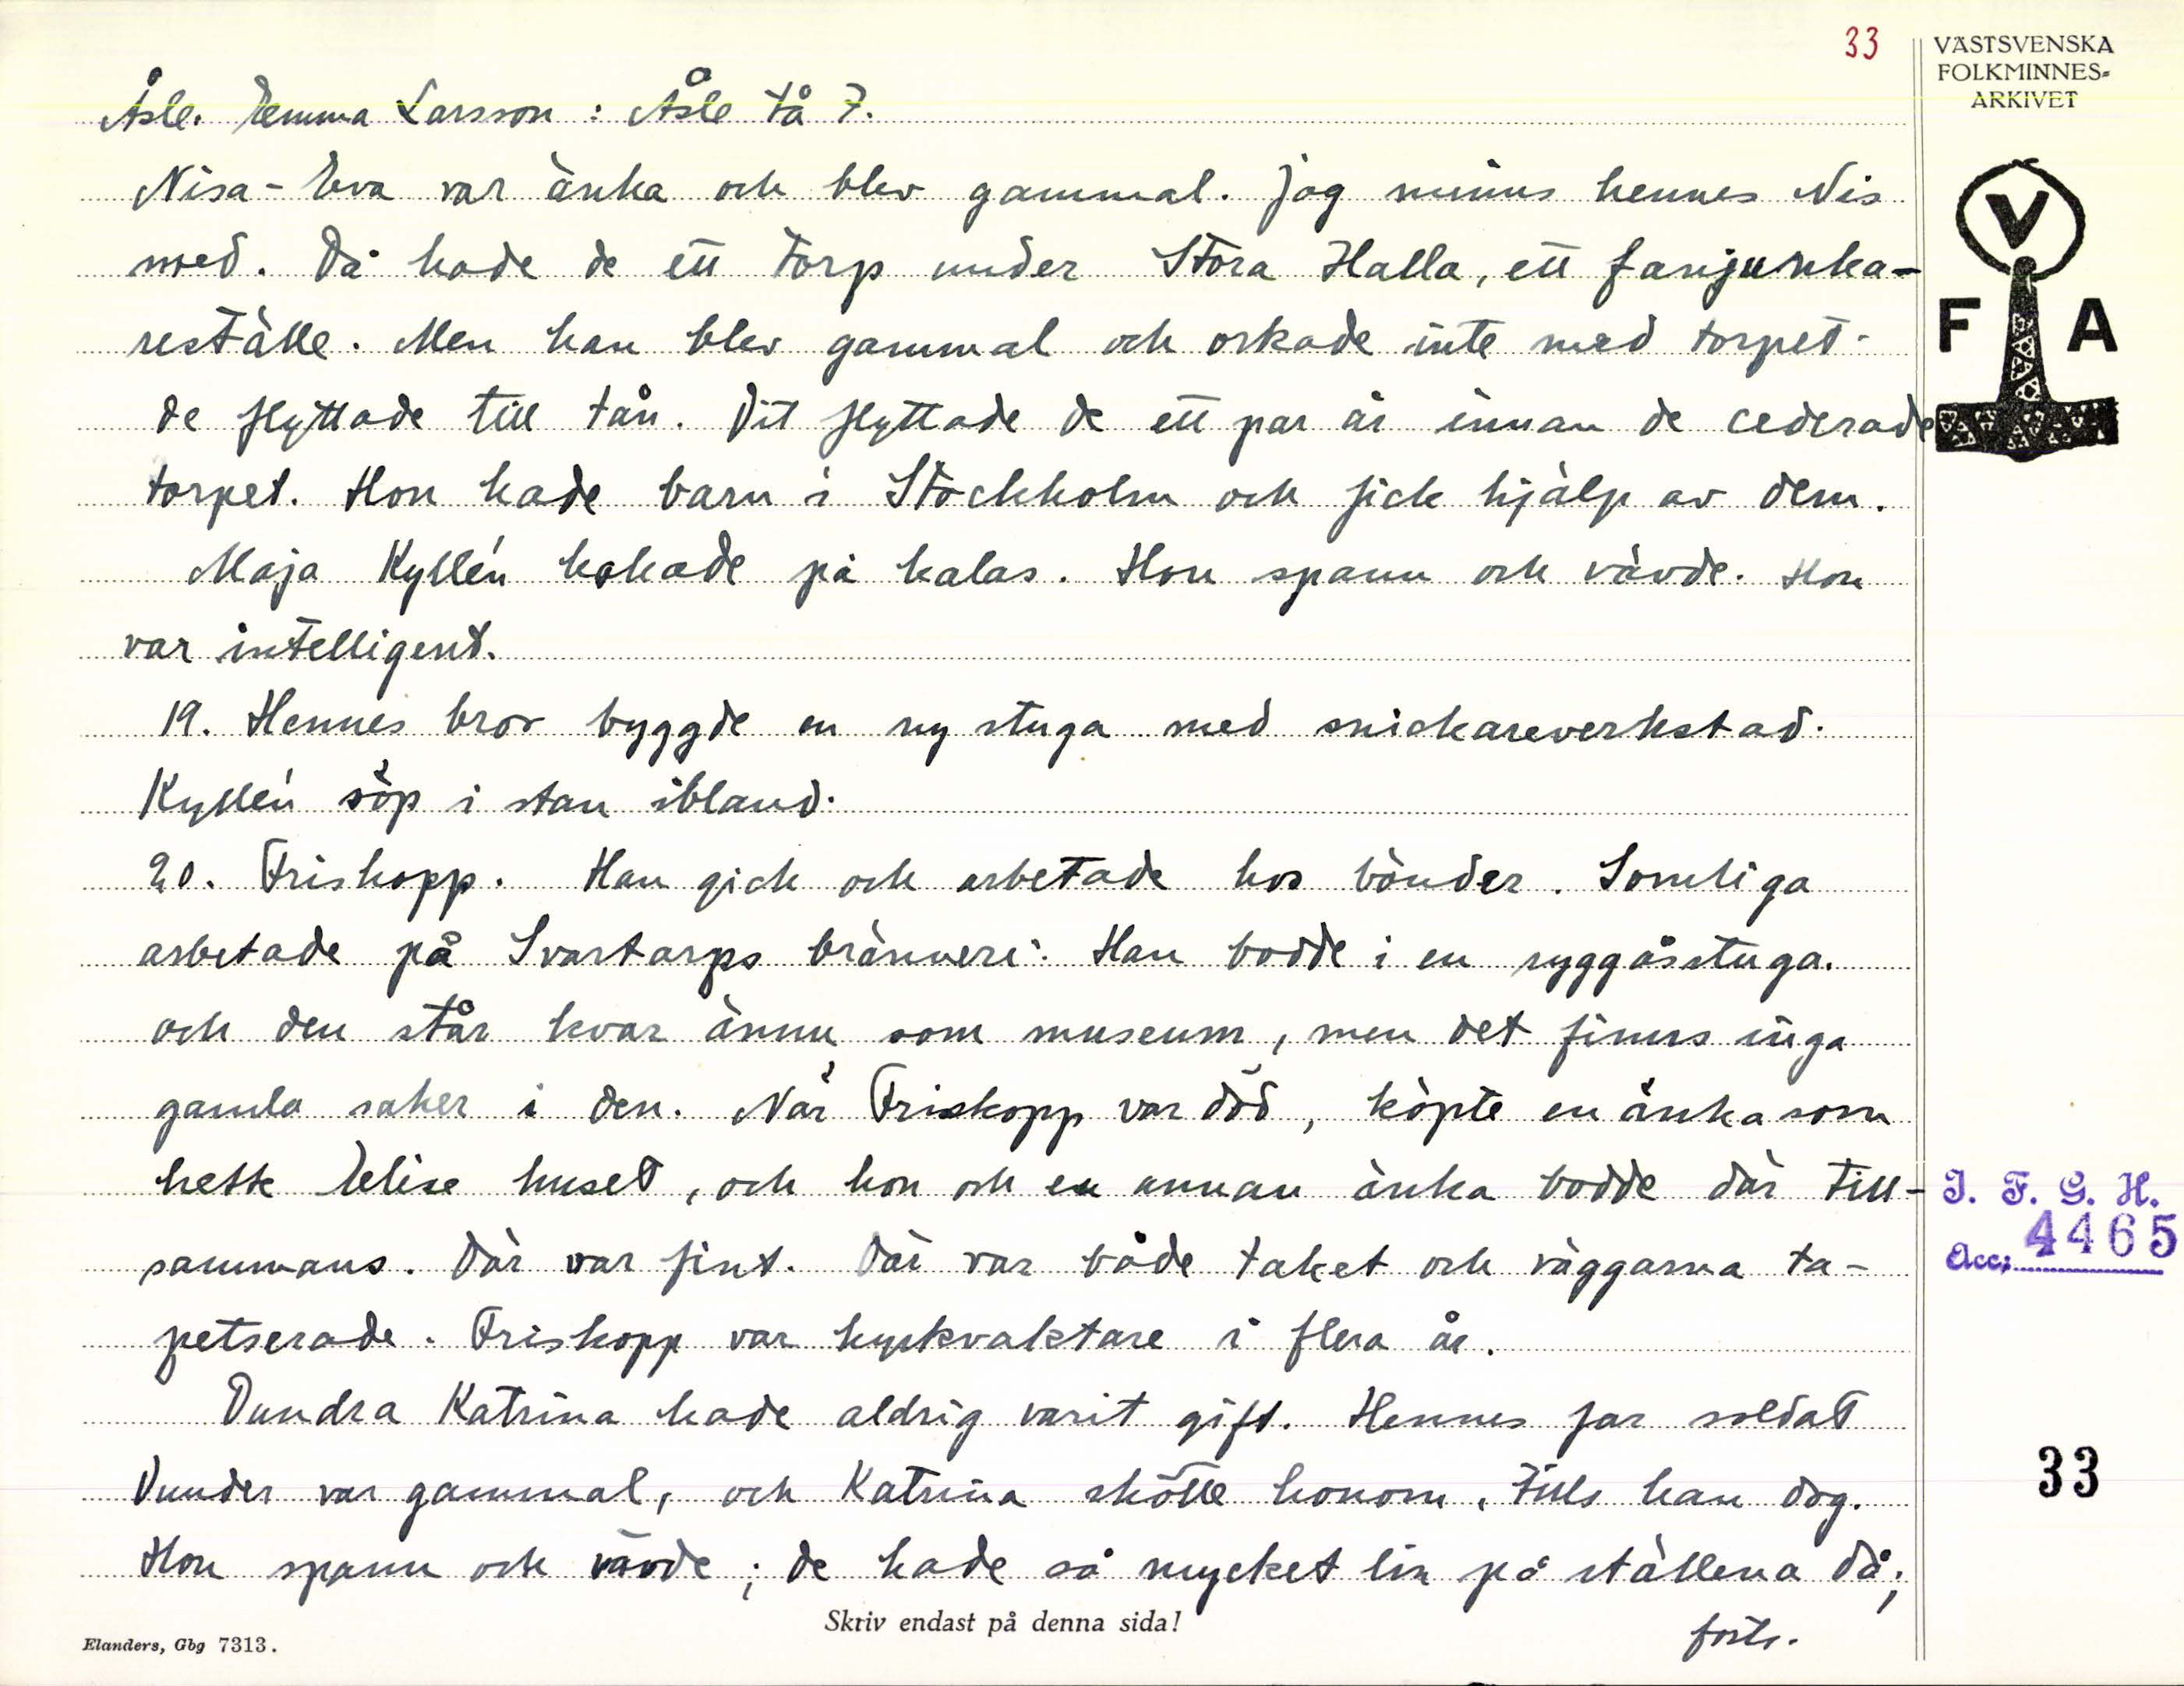 33
VÄSTSVENSKA
FOLKMINNES=
ARKIVET
Åsle. Emma Larsson : Åsle tå 7.
Nisa-Eva var änka och blev gammal. Jag minns hennes Nis
med. Då hade de ett torp under Stora Halla, ett fanjunka-
reställe. Men han blev gammal och orkade inte med torpet.
de flyttade till tån. Dit flyttade de ett par år innan de cederade
torpet. Hon hade barn i Stockholm och fick hjälp av dem.
Maja Kyllén kokade på kalas. Hon spann och vävde. Hon
var intelligent.
19. Hennes bror byggde en ny stuga med snickareverkstad.
Kyllén söp i stan ibland.
20. Friskopp. Han gick och arbetade hos bönder. Somliga
arbetade på Svartarps bränneri. Han bodde i en ryggåsstuga.
och den står kvar ännu som museum, men det finns inga
gamla saker i den. När Friskopp var död, köpte en änka som
hette Elise huset, och hon och en annan änka bodde där till-
sammans. Där var fint. Där var både taket och väggarna ta-
petserade. Friskopp var kyrkvaktare i flera år.
Dundra Katrina hade aldrig varit gift. Hennes far soldat
Dunder var gammal, och Katrina skötte honom, tills han dog.
Hon spann och vävde ; de hade så mycket lin på ställena då;
forts.
V
F A
I. F. G. H.
Acc: 4465
33
Skriv endast på denna sida!
Elanders, Gbg 7313.